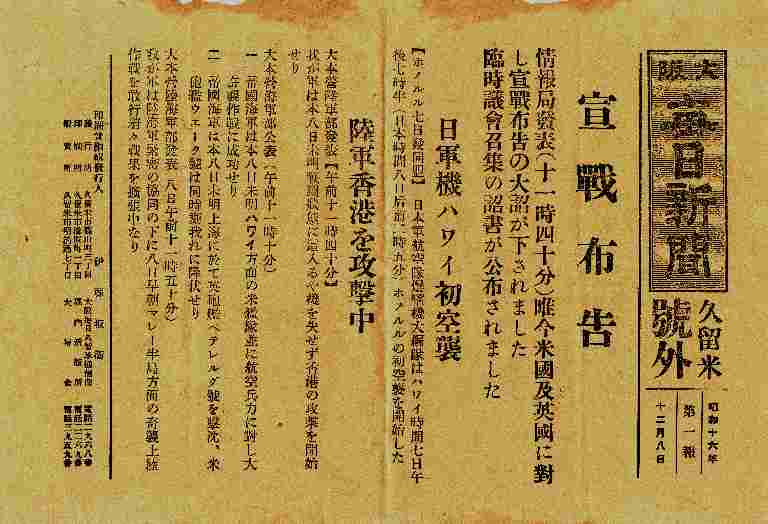 大阪
毎日新聞
久留米
號外
昭和十六年
第一報
十二月八日
宣戰布告
情報局發表(十一時四十分)唯今米國及英國に對
し宣戰布告の大詔が下されました
臨時議會召集の詔書が公布されました
日軍機ハワイ初空襲
【ホノルル七日發同盟】日本軍航空隊爆撃機大編隊はハワイ時間七日午
後七時半(日本時間八日后前二時五分)ホノルルの初空襲を開始した
陸軍香港を攻擊中
大本營陸軍部發表【午前十一時四十分】
我が軍は本八日未明戰鬪狀態に這入るや機を失せず香港の攻擊を開始
せり
大本營海軍部公表(午前十一時十分)
一 帝國海軍は本八日未明ハワイ方面の米艦隊並に航空兵力に對し大
奇襲作戰に成功せり
二 帝國海軍は本八日未明上海に於て英砲艦ペテレルグ號を擊沈、米
砲艦ウエーク號は同時刻我れに降伏せり
大本營陸海軍部發表 八日午前十一時五十分)
我が軍は陸海軍緊密の協同の下に八日早朝マレー半島方面の奇襲上陸
作戰を敢行着々戰果を擴張中なり
印刷兼編輯發行人
發行所 久留米市
印刷所 久留米市
販賣所 久留米市
電話二一六八番
電話二二六九番
電話二九五九番